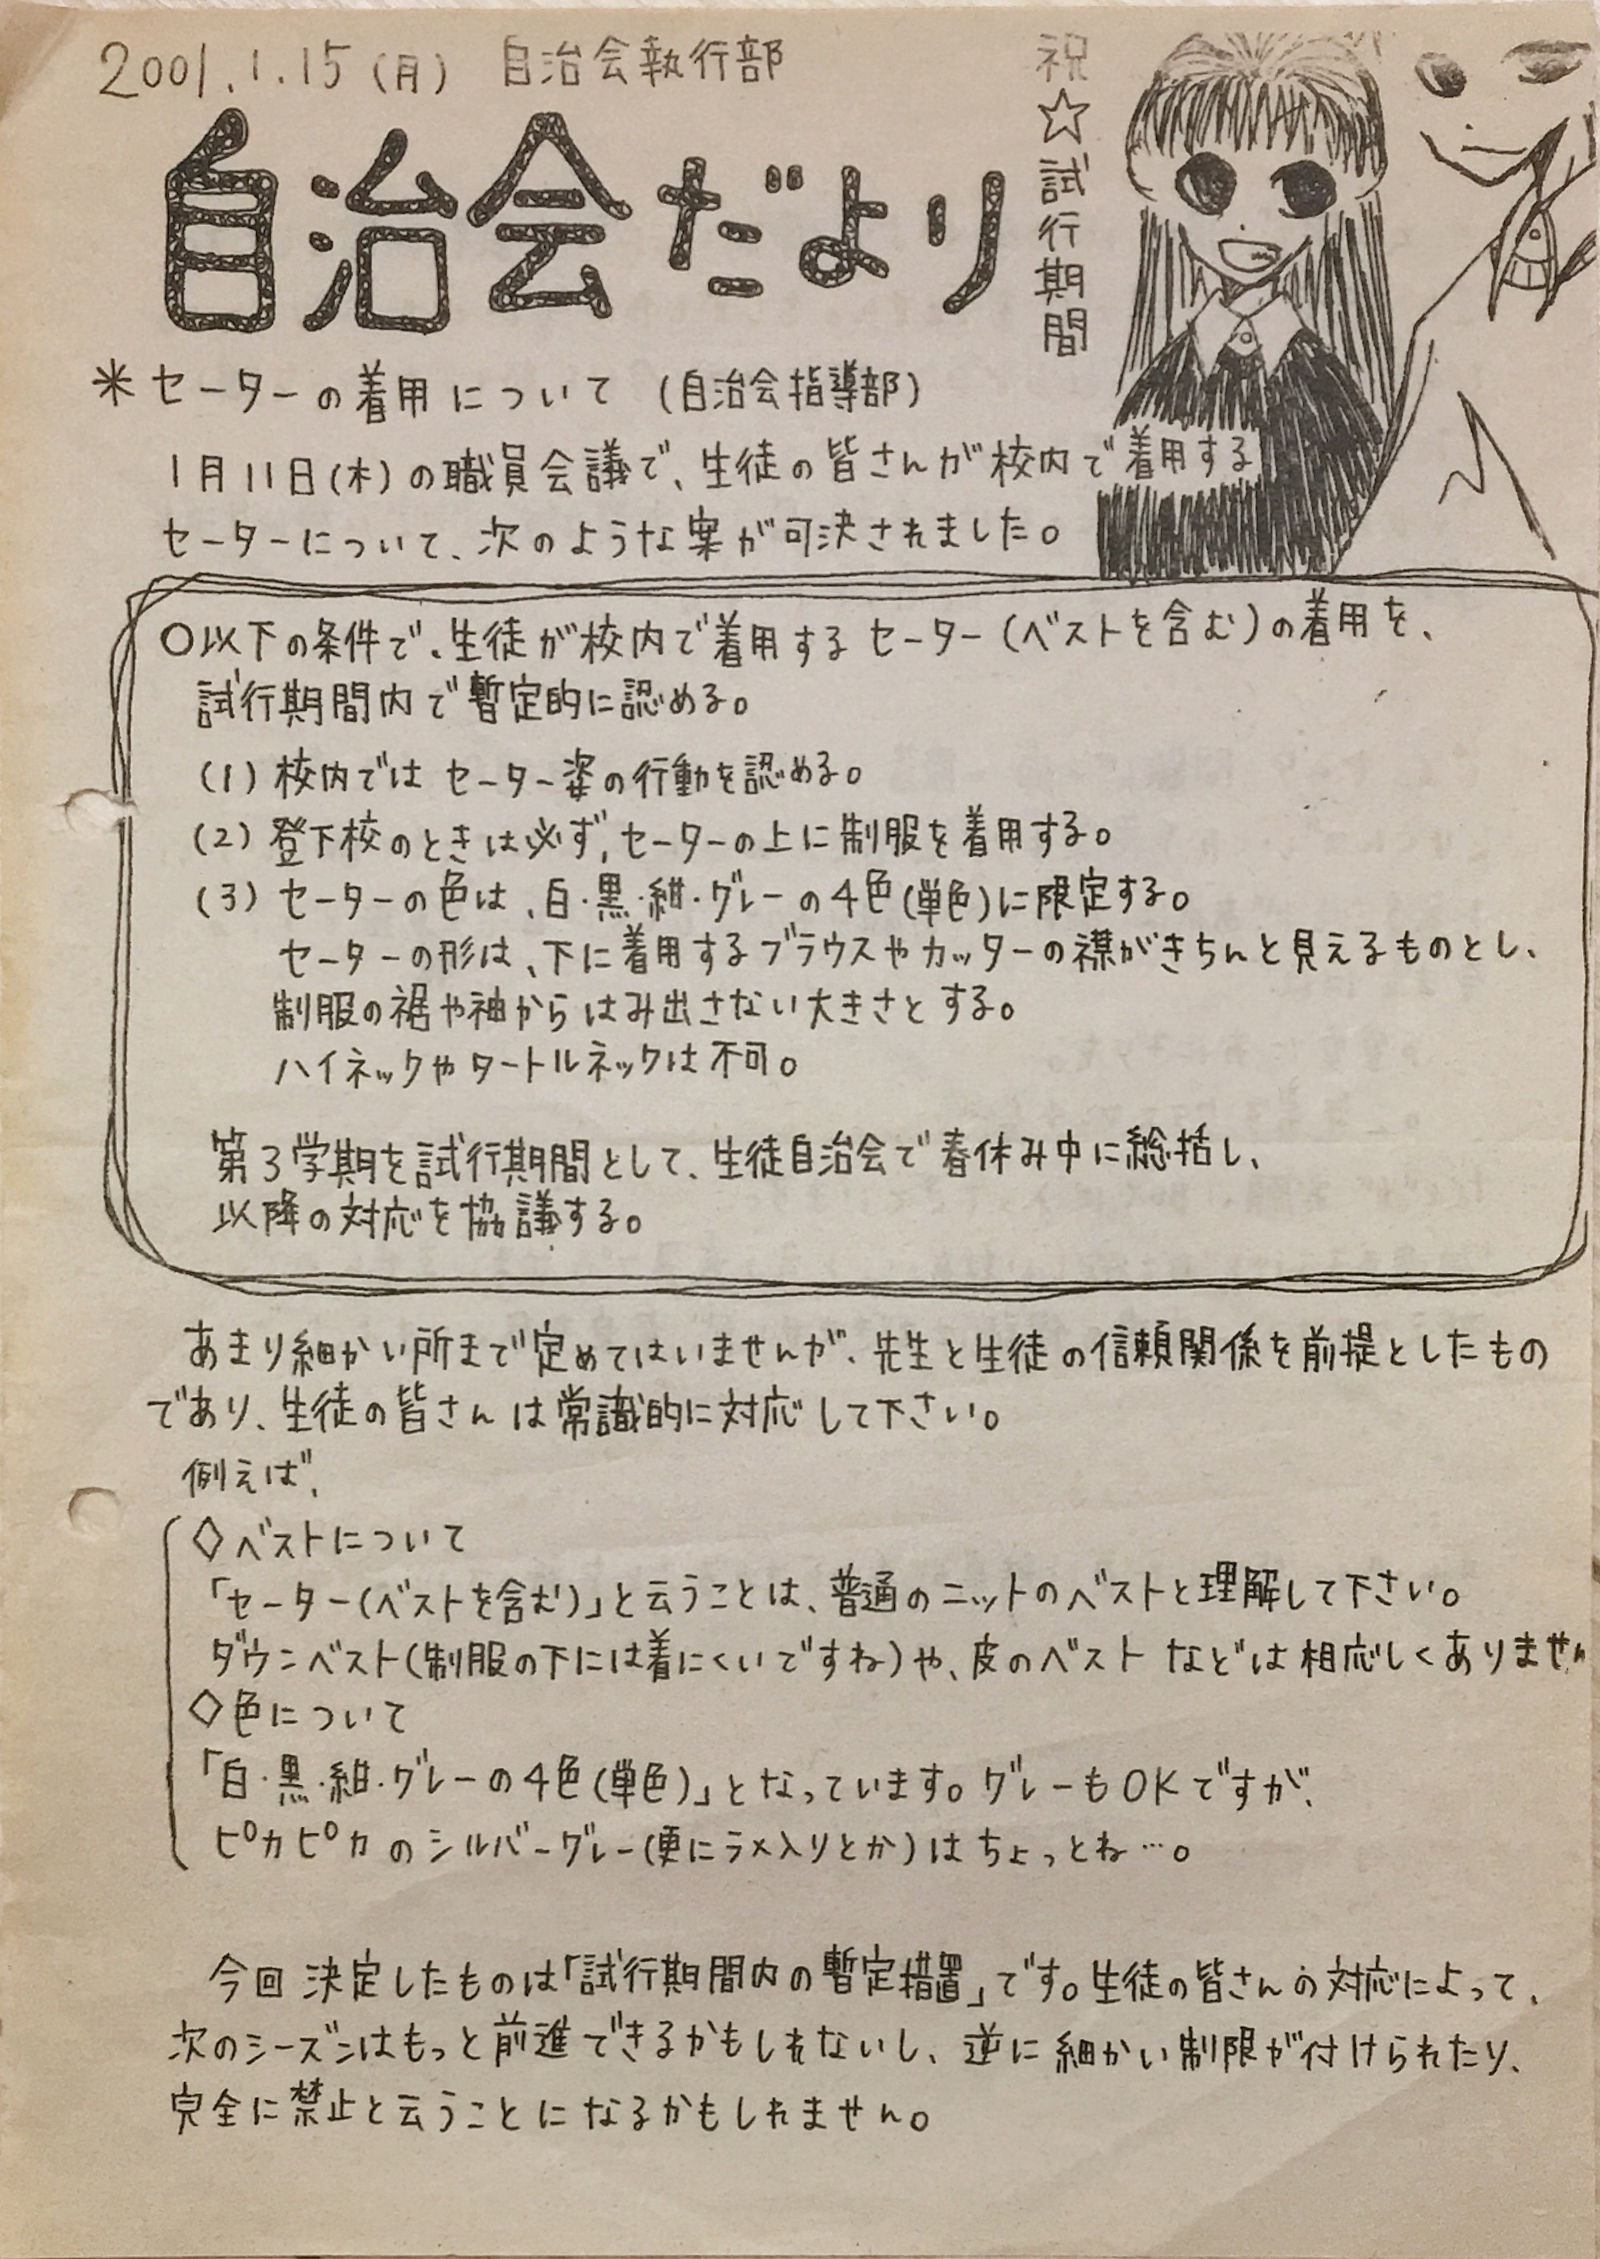 2001.1.15(月) 自治会執行部
自治会だより
祝☆試行期間
＊セーターの着用について (自治会指導部)
1月11日(木)の職員会議で、生徒の皆さんが校内で着用する
セーターについて、次のような案が可決されました。
○以下の条件で、生徒が校内で着用するセーター(ベストを含む)の着用を、
試行期間内で暫定的に認める。
(1) 校内ではセーター姿の行動を認める。
(2) 登下校のときは必ず、セーターの上に制服を着用する。
(3) セーターの色は、白・黒・紺・グレーの4色(単色)に限定する。
セーターの形は、下に着用するブラウスやカッターの襟がきちんと見えるものとし、
制服の裾や袖からはみ出さない大きさとする。
ハイネックやタートルネックは不可。
第3学期を試行期間として、生徒自治会で春休み中に総括し、
以降の対応を協議する。
あまり細かい所まで定めてはいませんが、先生と生徒の信頼関係を前提としたもの
であり、生徒の皆さんは常識的に対応して下さい。
例えば、
◇ベストについて
「セーター(ベストを含む)」と云うことは、普通のニットのベストと理解して下さい。
ダウンベスト(制服の下には着にくいですね)や、皮のベストなどは相応しくありません
◇色について
「白・黒・紺・グレーの4色(単色)」となっています。グレーもOKですが、
ピカピカのシルバーグレー(更にラメ入りとか)はちょっとね…。
今回決定したものは「試行期間内の暫定措置」です。生徒の皆さんの対応によって、
次のシーズンはもっと前進できるかもしれないし、逆に細かい制限が付けられたり、
完全に禁止と云うことになるかもしれません。